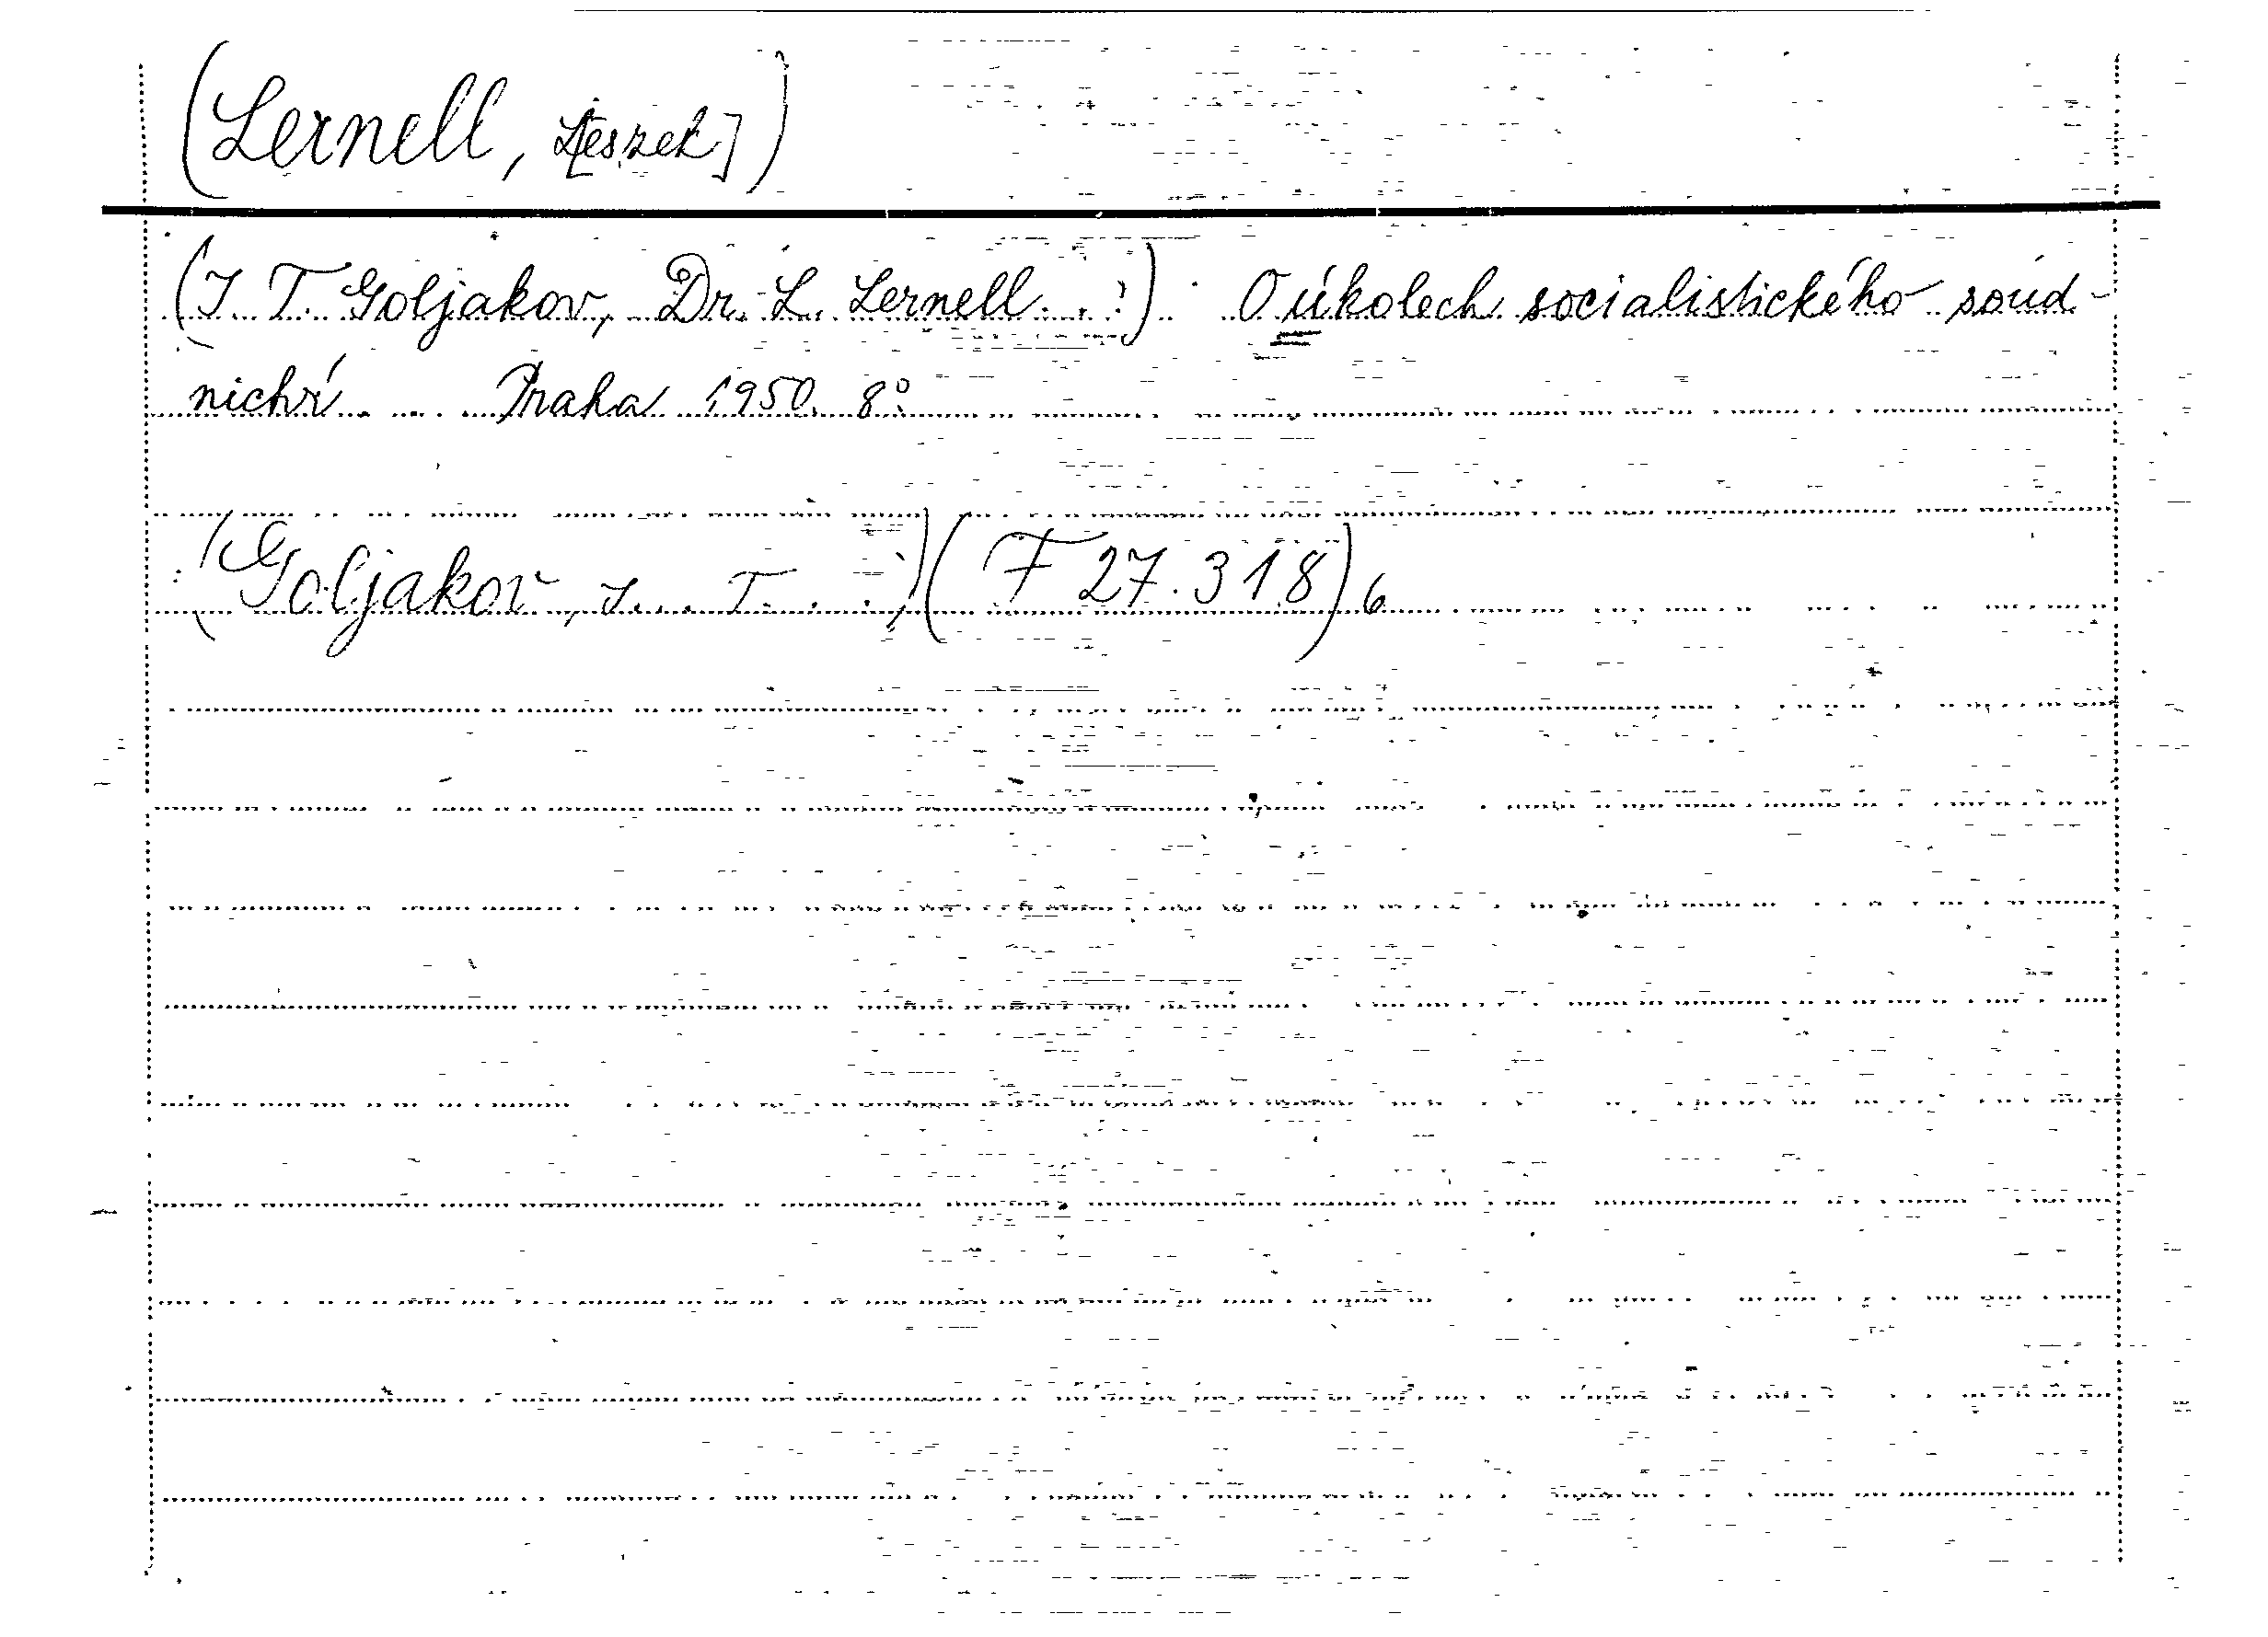 (Lernell, L[eszek])
(I. T. Goljakov, Dr. L. Lernell..:) O úkolech socialistického soud-
nictví... Praha 1950. 8°.
(Goljakov, I. T. :) (F 27.318) 6